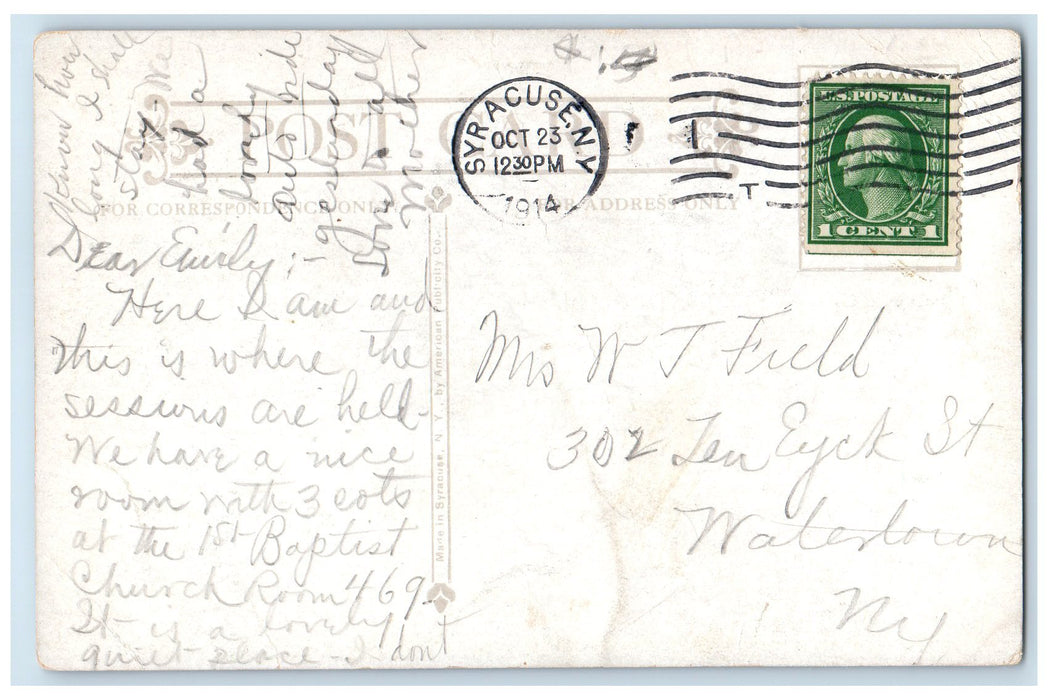 POST CARD
FOR CORRESPONDENCE ONLY
FOR ADDRESS ONLY
SYRACUSE, N.Y.
OCT 23
12 30 PM
1914
T
U.S. POSTAGE
1 CENT 1
Dear Emily:-
Here I am and
this is where the
sessions are held-
We have a nice
room with 3 cots
at the 1st Baptist
Church Room 469-
It is a lovely
quiet place - I dont
know how
long I shall
stay - We
had a
lovely
auto ride
yesterday
Love to all
Mother
Made in Syracuse, N. Y., by American Publicity Co.
Mrs W T Field
302 Ten Eyck St
Watertown
Ny